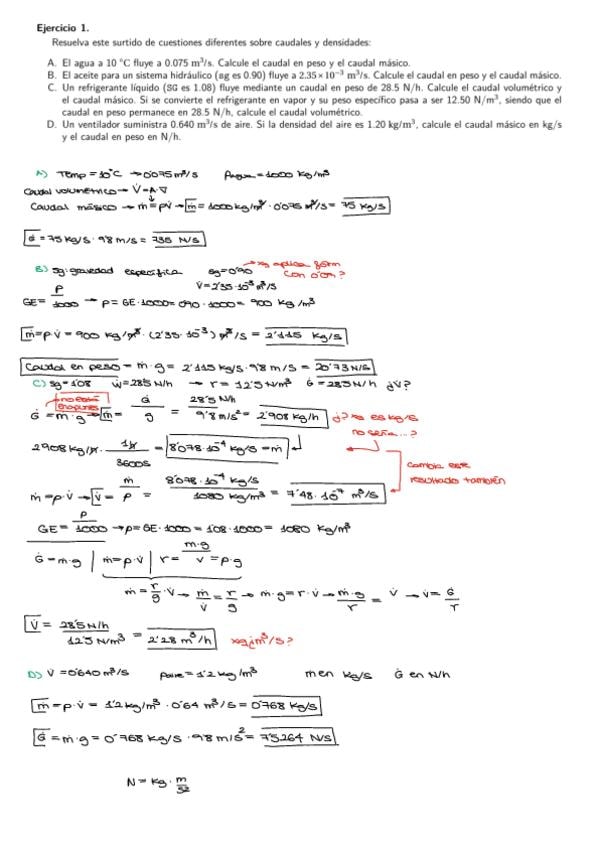 Ejercicio 1.
Resuelva este surtido de cuestiones diferentes sobre caudales y densidades:
A. El agua a 10 °C fluye a 0.075 m³/s. Calcule el caudal en peso y el caudal másico.
B. El aceite para un sistema hidráulico (sg es 0.90) fluye a 2.35×10⁻³ m³/s. Calcule el caudal en peso y el caudal másico.
C. Un refrigerante líquido (SG es 1.08) fluye mediante un caudal en peso de 28.5 N/h. Calcule el caudal volumétrico y
el caudal másico. Si se convierte el refrigerante en vapor y su peso específico pasa a ser 12.50 N/m³, siendo que el
caudal en peso permanece en 28.5 N/h, calcule el caudal volumétrico.
D. Un ventilador suministra 0.640 m³/s de aire. Si la densidad del aire es 1.20 kg/m³, calcule el caudal másico en kg/s
y el caudal en peso en N/h.
A) Temp = 10°C → 0'075 m³/s ρagua = 1000 kg/m³
Caudal volumétrico → V̇ = A·v
Caudal másico → ṁ = ρV̇ → ṁ = 1000 kg/m³ · 0'075 m³/s = 75 kg/s
Ġ = 75 kg/s · 9'8 m/s = 735 N/s
B) sg: gravedad específica sg = 0'90 → xq aplica
con 0'0n?
V̇ = 2'35·10⁻³ m³/s
GE = ρ/1000 → ρ = GE·1000 = 0'90·1000 = 900 kg/m³
ṁ = ρ·V̇ = 900 kg/m³ · (2'35·10⁻³) m³/s = 2'115 kg/s
Caudal en peso = ṁ·g = 2'115 kg/s · 9'8 m/s = 20'73 N/s
C) sg = 1'08 ẇ = 28'5 N/h → r = 12'5 N/m³ Ġ = 28'5 N/h ¿V̇?
Ġ = ṁ·g → ṁ = Ġ/g = 28'5 N/h / 9'8 m/s² = 2'908 kg/h ¿? no es kg/s
no sería...?
2'908 kg/h · 1h/3600s = 8'078·10⁻⁴ kg/s = ṁ
cambia este
resultado también
ṁ = ρ·V̇ → V̇ = ṁ/ρ = 8'078·10⁻⁴ kg/s / 1080 kg/m³ = 7'48·10⁻⁷ m³/s
GE = ρ/1000 → ρ = GE·1000 = 1'08·1000 = 1080 kg/m³
Ġ = ṁ·g | ṁ = ρ·V̇ | r = m·g/v = ρ·g
ṁ = r/g · V̇ → ṁ/V̇ = r/g → ṁ·g = r·V̇ → ṁ·g/r = V̇ → V̇ = Ġ/r
V̇ = 28'5 N/h / 12'5 N/m³ = 2'28 m³/h xq ¿m³/s?
D) V̇ = 0'640 m³/s ρaire = 1'2 kg/m³ ṁ en kg/s Ġ en N/h
ṁ = ρ·V̇ = 1'2 kg/m³ · 0'64 m³/s = 0'768 kg/s
Ġ = ṁ·g = 0'768 kg/s · 9'8 m/s² = 7'5264 N/s
N = kg · m/s²